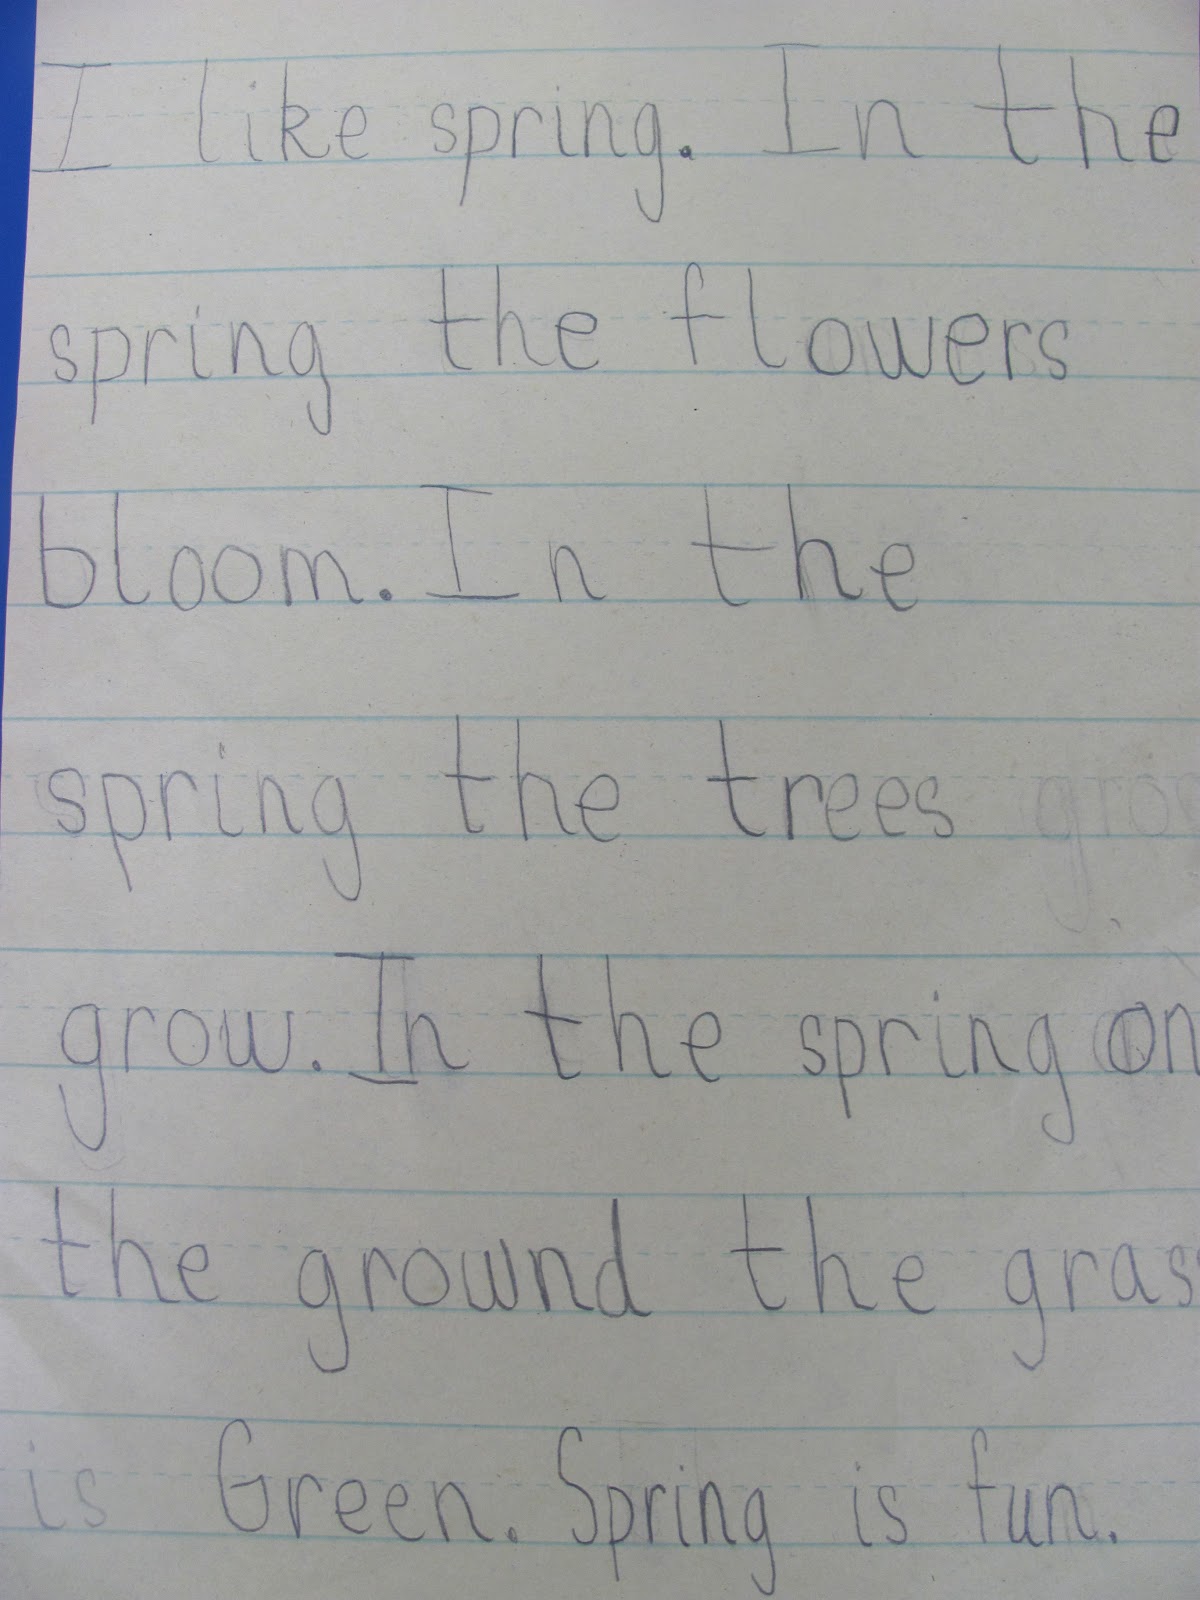 I like spring. In the
spring the flowers
bloom. In the
spring the trees
grow. In the spring on
the grownd the gras
is Green. Spring is fun.